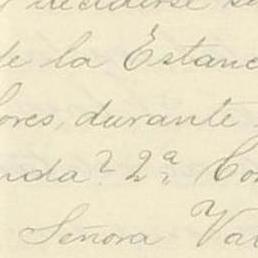 decidirse
de la Estanc
ores, durante
nda? 2ª Co
Señora Val